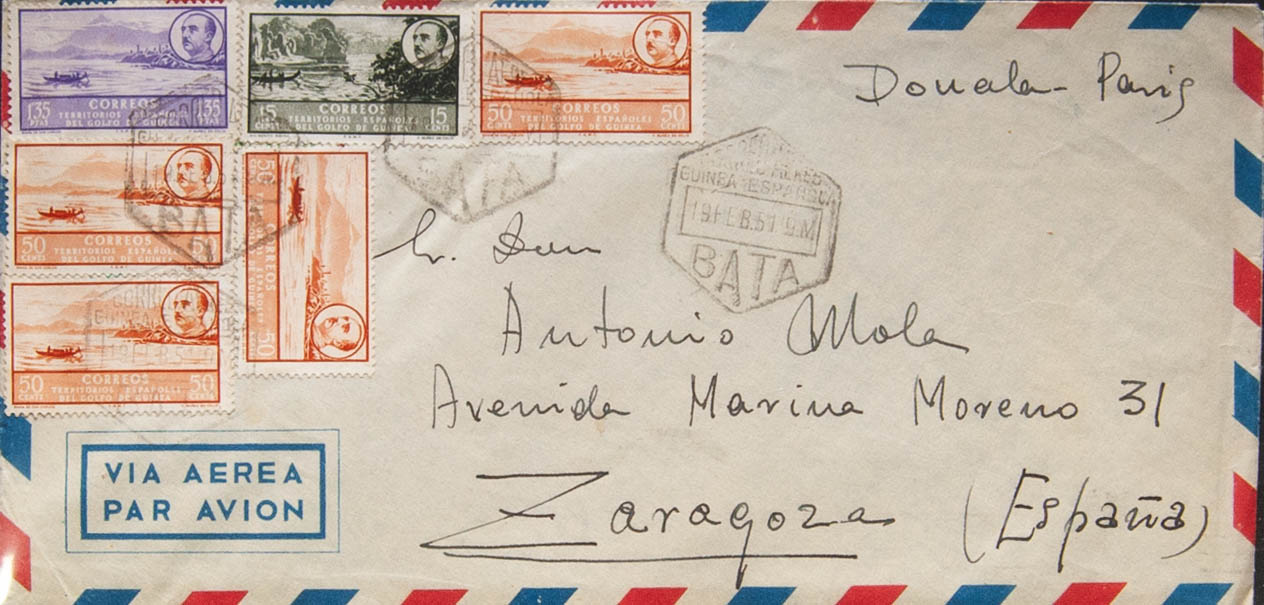 1'35 PTAS CORREOS 1'35 PTAS
TERRITORIOS ESPAÑOLES
DEL GOLFO DE GUINEA
15 CENTS CORREOS 15 CENTS
TERRITORIOS ESPAÑOLES
DEL GOLFO DE GUINEA
50 CENTS CORREOS 50 CENTS
TERRITORIOS ESPAÑOLES
DEL GOLFO DE GUINEA
Douala - Paris
50 CENTS CORREOS 50 CENTS
TERRITORIOS ESPAÑOLES
DEL GOLFO DE GUINEA
50 CENTS CORREOS 50 CENTS
TERRITORIOS ESPAÑOLES
DEL GOLFO DE GUINEA
50 CENTS CORREOS 50 CENTS
TERRITORIOS ESPAÑOLES
DEL GOLFO DE GUINEA
BATA
BATA
CORREO AEREO
GUINEA ESPAÑOLA
19 FEB.51 9M
BATA
Sr. Don
Antonio Mola
Avenida Marina Moreno 31
Zaragoza (España)
VIA AEREA
PAR AVION